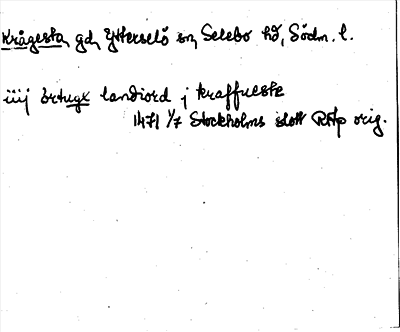 Krågesta, gd, Ytterselö sn, Selebo hd, Södm. l.
iiij örtugx landiord j kraffuesta
1471 1/7 Stockholms slott RAp orig.